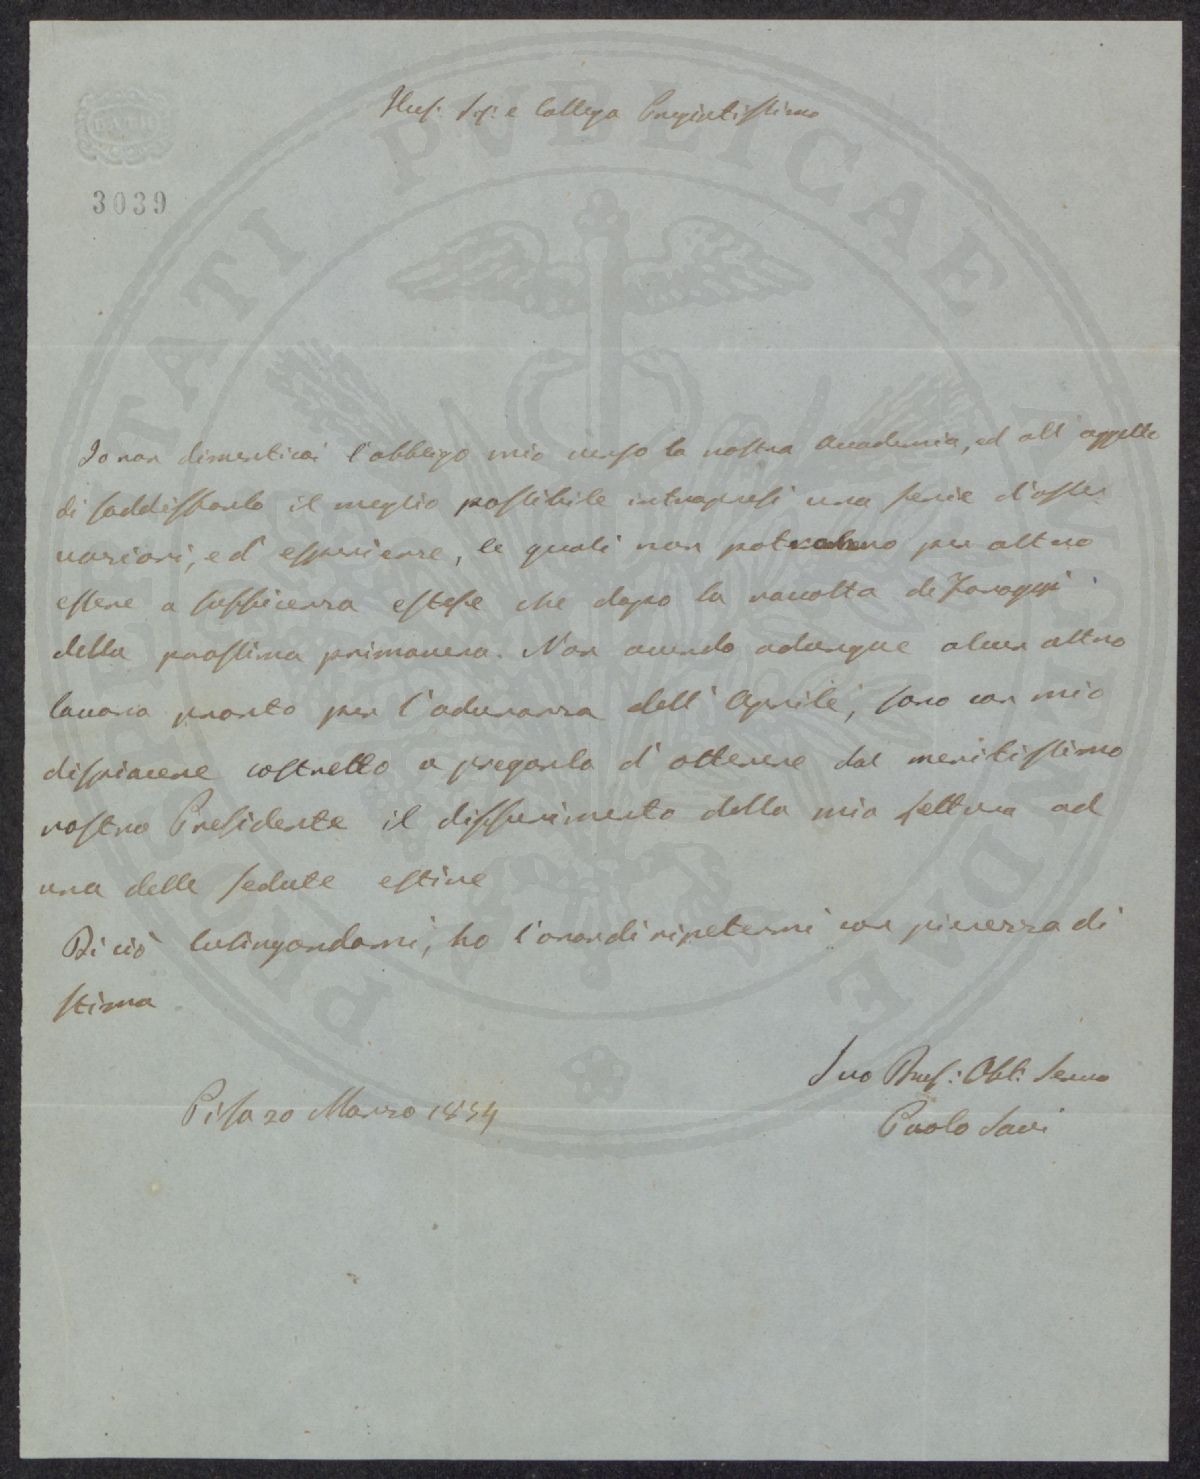 Illus: Sig: e Collega Pregiatissimo
3039
BATH
PROSPERITATI PVBLICAE AVGENDAE
Io non dimenticai l'obbligo mio verso la nostra Accademia, ed all'oggetto
di soddisfarlo il meglio possibile intrapresi una serie d'osser
vazioni, ed esperienze, le quali non potranno per altro
essere a sufficienza estese che dopo la raccolta de Foraggi
della prossima primavera. Non avendo adunque alcun altro
lavoro pronto per l'adunanza dell'Aprile, sono con mio
dispiacere costretto a pregarla d'ottenere dal meritissimo
nostro Presidente il differimento della mia lettura ad
una delle sedute estive
Di ciò lusingandomi, ho l'onor di ripetermi con pienezza di
stima
Suo Obbl: Servo
Pisa 20 Marzo 1854
Paolo Savi